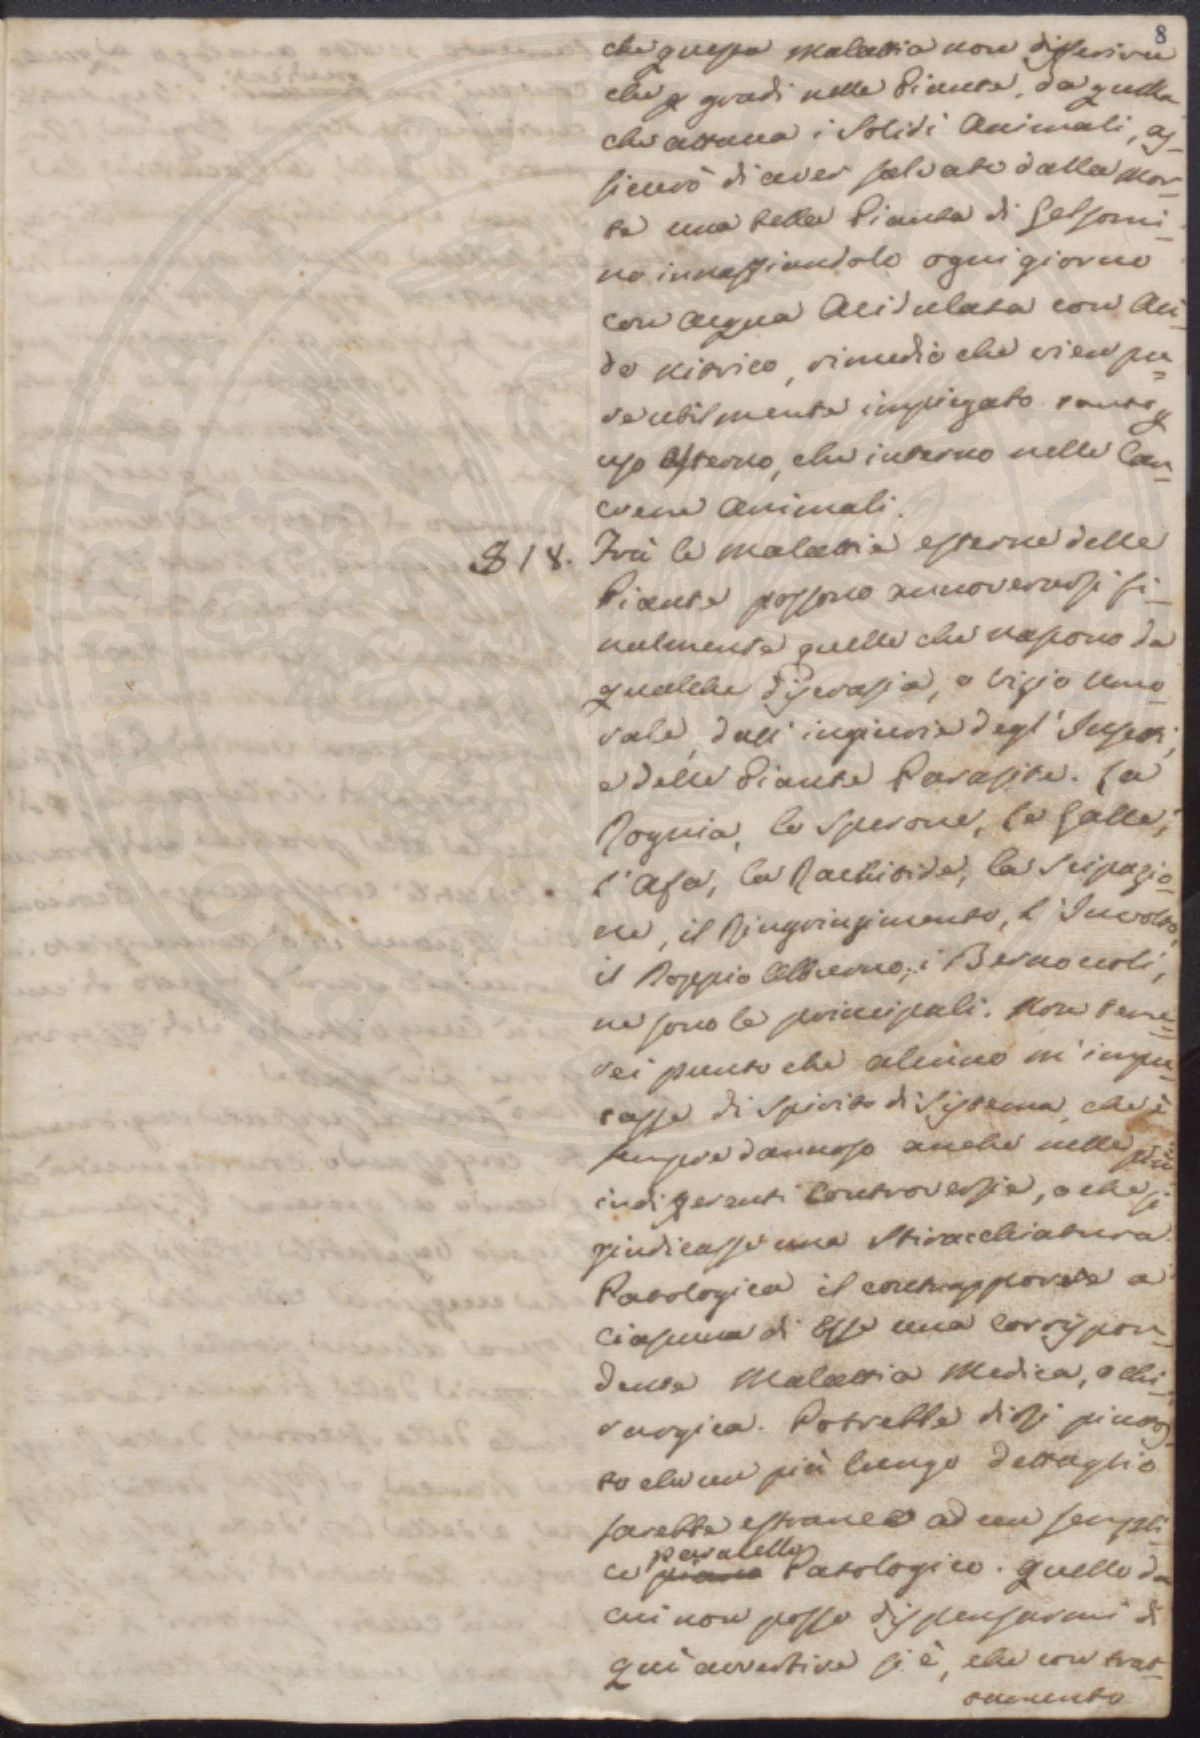 8
che questa malattia non differiva
che p gradi nelle Piante, da quella
che attacca i Solidi Animali, as-
sicurò di aver salvato dalla mor-
te una bella Pianta di Gelsomi-
no innaffiandolo ogni giorno
con acqua Acidulata con Aci-
do nitrico, rimedio che vien pu-
re utilmente impiegato tanto p
uso esterno, che interno nelle Can-
crene Animali.
§ 18. Frà le malattie esterne delle
Piante possono annoverarsi fi-
nalmente quelle che nascono da
qualche discrasia, o vizio Umo-
rale, dall' ingiurie degl' Insetti,
e delle Piante Parasite. La
Rognia, lo Sperone, le Galle,
l'Afa, la Rachitide, la Scipazio-
ne, il Ringrinzimento, l'Involto,
il Doppio Alburno, i Bernoccoli,
ne sono le principali. Non teme-
rei punto che alcuno m' impu-
tasse di Spirito di Sistema, che è
sempre dannoso anche nelle più
indifferenti Controversie, o che si
giudicasse una Stiracchiatura
Patologica il contrapporre a
Ciascuna di Esse una corrispon-
dente Malattia Medica, o Chi-
rurgica. Potrebbe dirsi piutos-
to che un più lungo dettaglio
sarebbe estraneo ad un sempli-
ce paralello Patologico. Quello da
cui non posso dispensarmi di
quì avvertire si è, che con trat-
tamento